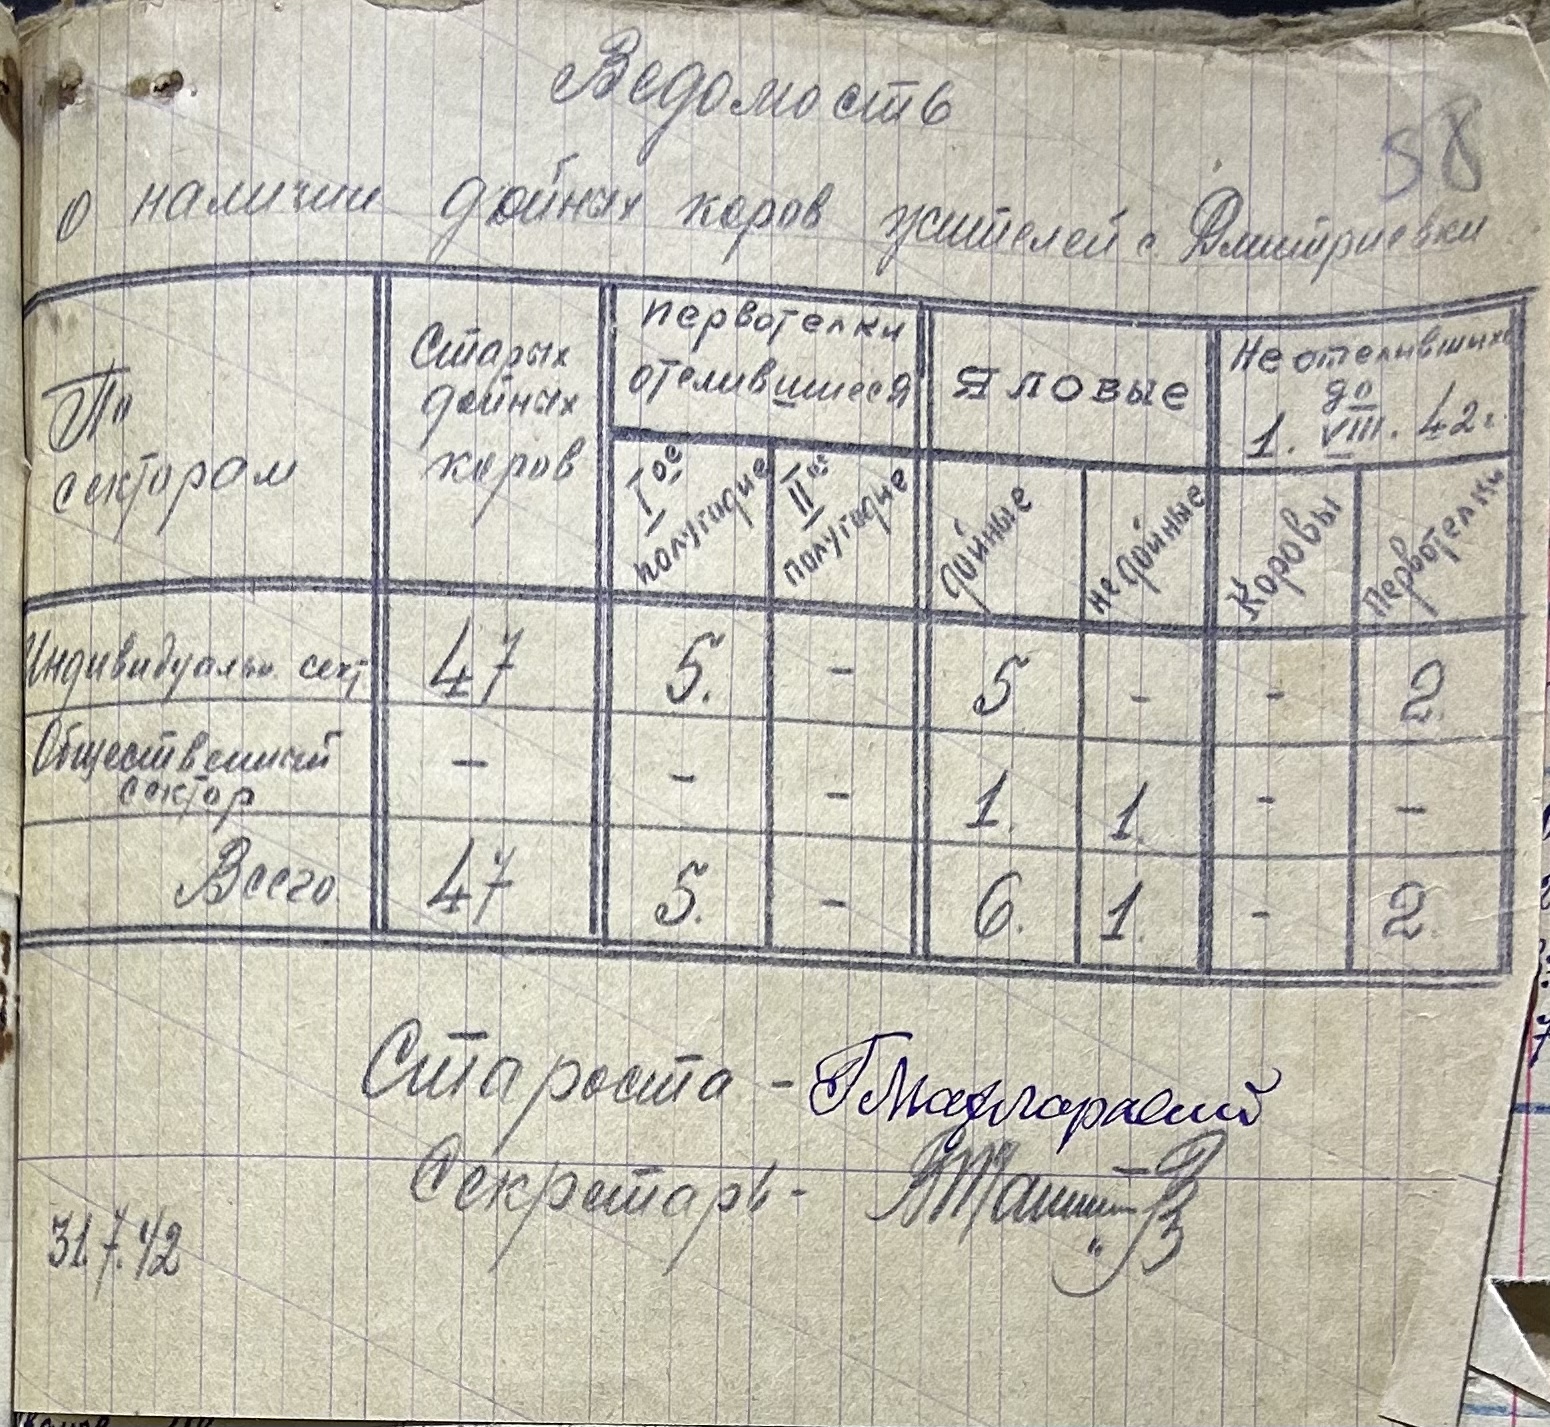 Ведомость
58
о наличии дойных коров жителей с. Дмитриевки
По секторам
Старых дойных коров
Первотелки отелившиеся
Яловые
Не отеливших до 1. VIII. 42 г.
I ое полугодие
II ое полугодие
дойные
не дойные
Коровы
Первотелки
Индивидуальн. сект. 47 5. - 5 - - 2.
Общественный сектор - - - 1. 1. - -
Всего 47 5. - 6. 1. - 2.
Староста -
Секретарь -
31.7.42